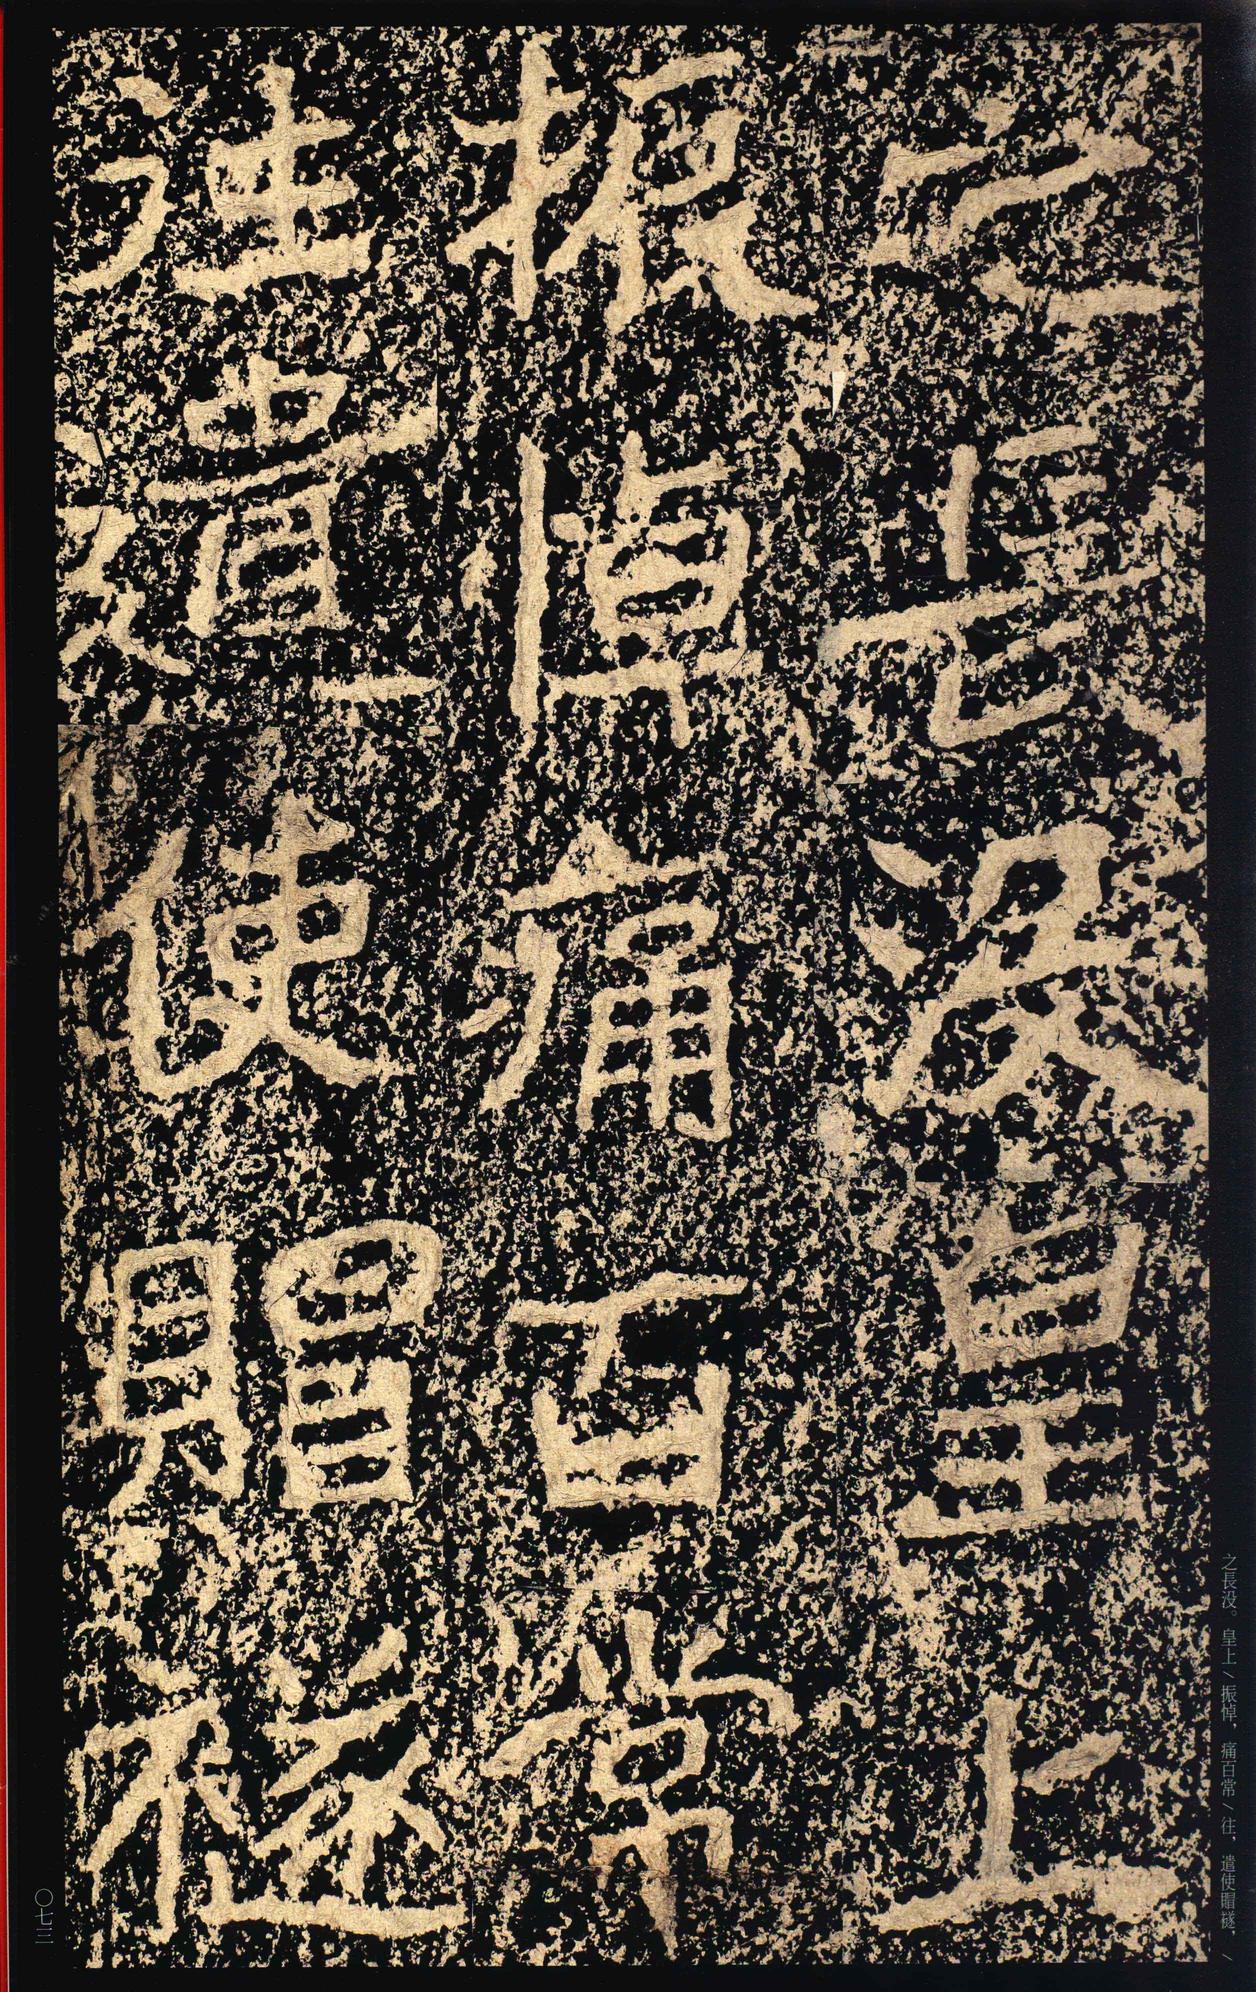 之長没皇上
振悼痛百常
往遣使賵襚
之長没。皇上/振悼，痛百常/往，遣使賵襚，/
〇七三